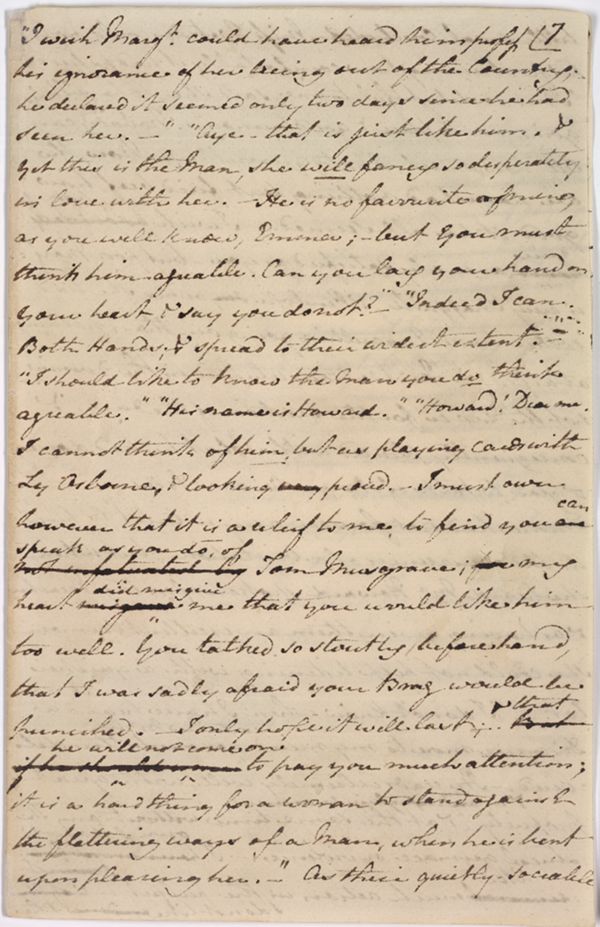 "I wish Margt. could have heard him profess (7
his ignorance of her being out of the Country;
he declared it seemed only two days since he had
seen her. —" "Aye that is just like him. &
yet this is the Man, she will fancy so desperately
in love with her. — He is no favourite of mine,
as you well know, Emma; — but you must
think him agreable. Can you lay your hand on
your heart, & say you do not?" — "Indeed I can.
Both Hands; & spread to their widest extent." —
"I should like to know the Man you do think
agreable." "His name is Howard." "Howard! Dear me.
I cannot think of him, but as playing cards with
Ly Osborne, & looking very proud. — I must own
however that it is a releif to me, to find you can are
speak as you do, of
not infatuated by Tom Musgrave; for my
did misgive
heart misgave me that you would like him
too well. You talked so stoutly beforehand,
that I was sadly afraid your Brag would be
punished. — I only hope it will last; — that But
he will not come on
if he should come to pay you much attention;
it is a hard thing for a woman to stand against
the flattering ways of a Man, when he is bent
upon pleasing her. —" As their quietly-sociable